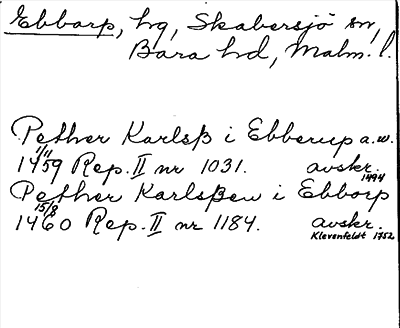 Ebbarp, hg, Skabersjö sn,
Bara hd, Malm. l.
Pether Karlsß i Ebberup a.w.
1/11 1459 Rep. II nr 1031. avskr. 1494
Pether Karlsßen i Ebborp
15/8 1460 Rep. II nr 1184. avskr. Klevenfeldt 1752